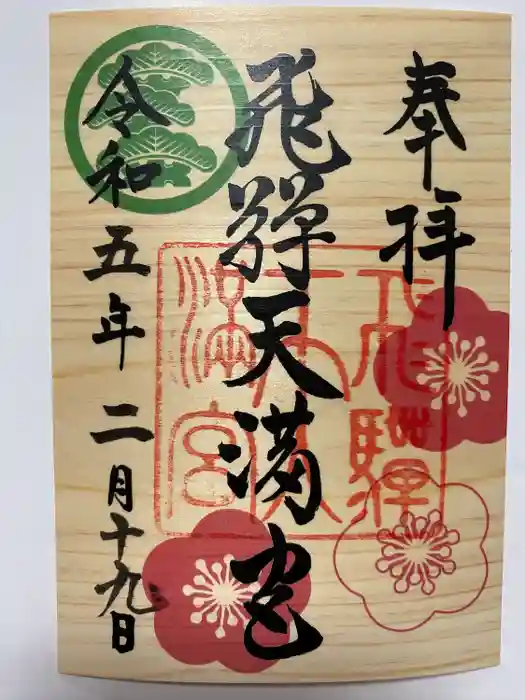 奉拝
飛騨天満宮
令和五年二月十九日
飛驒天満宮